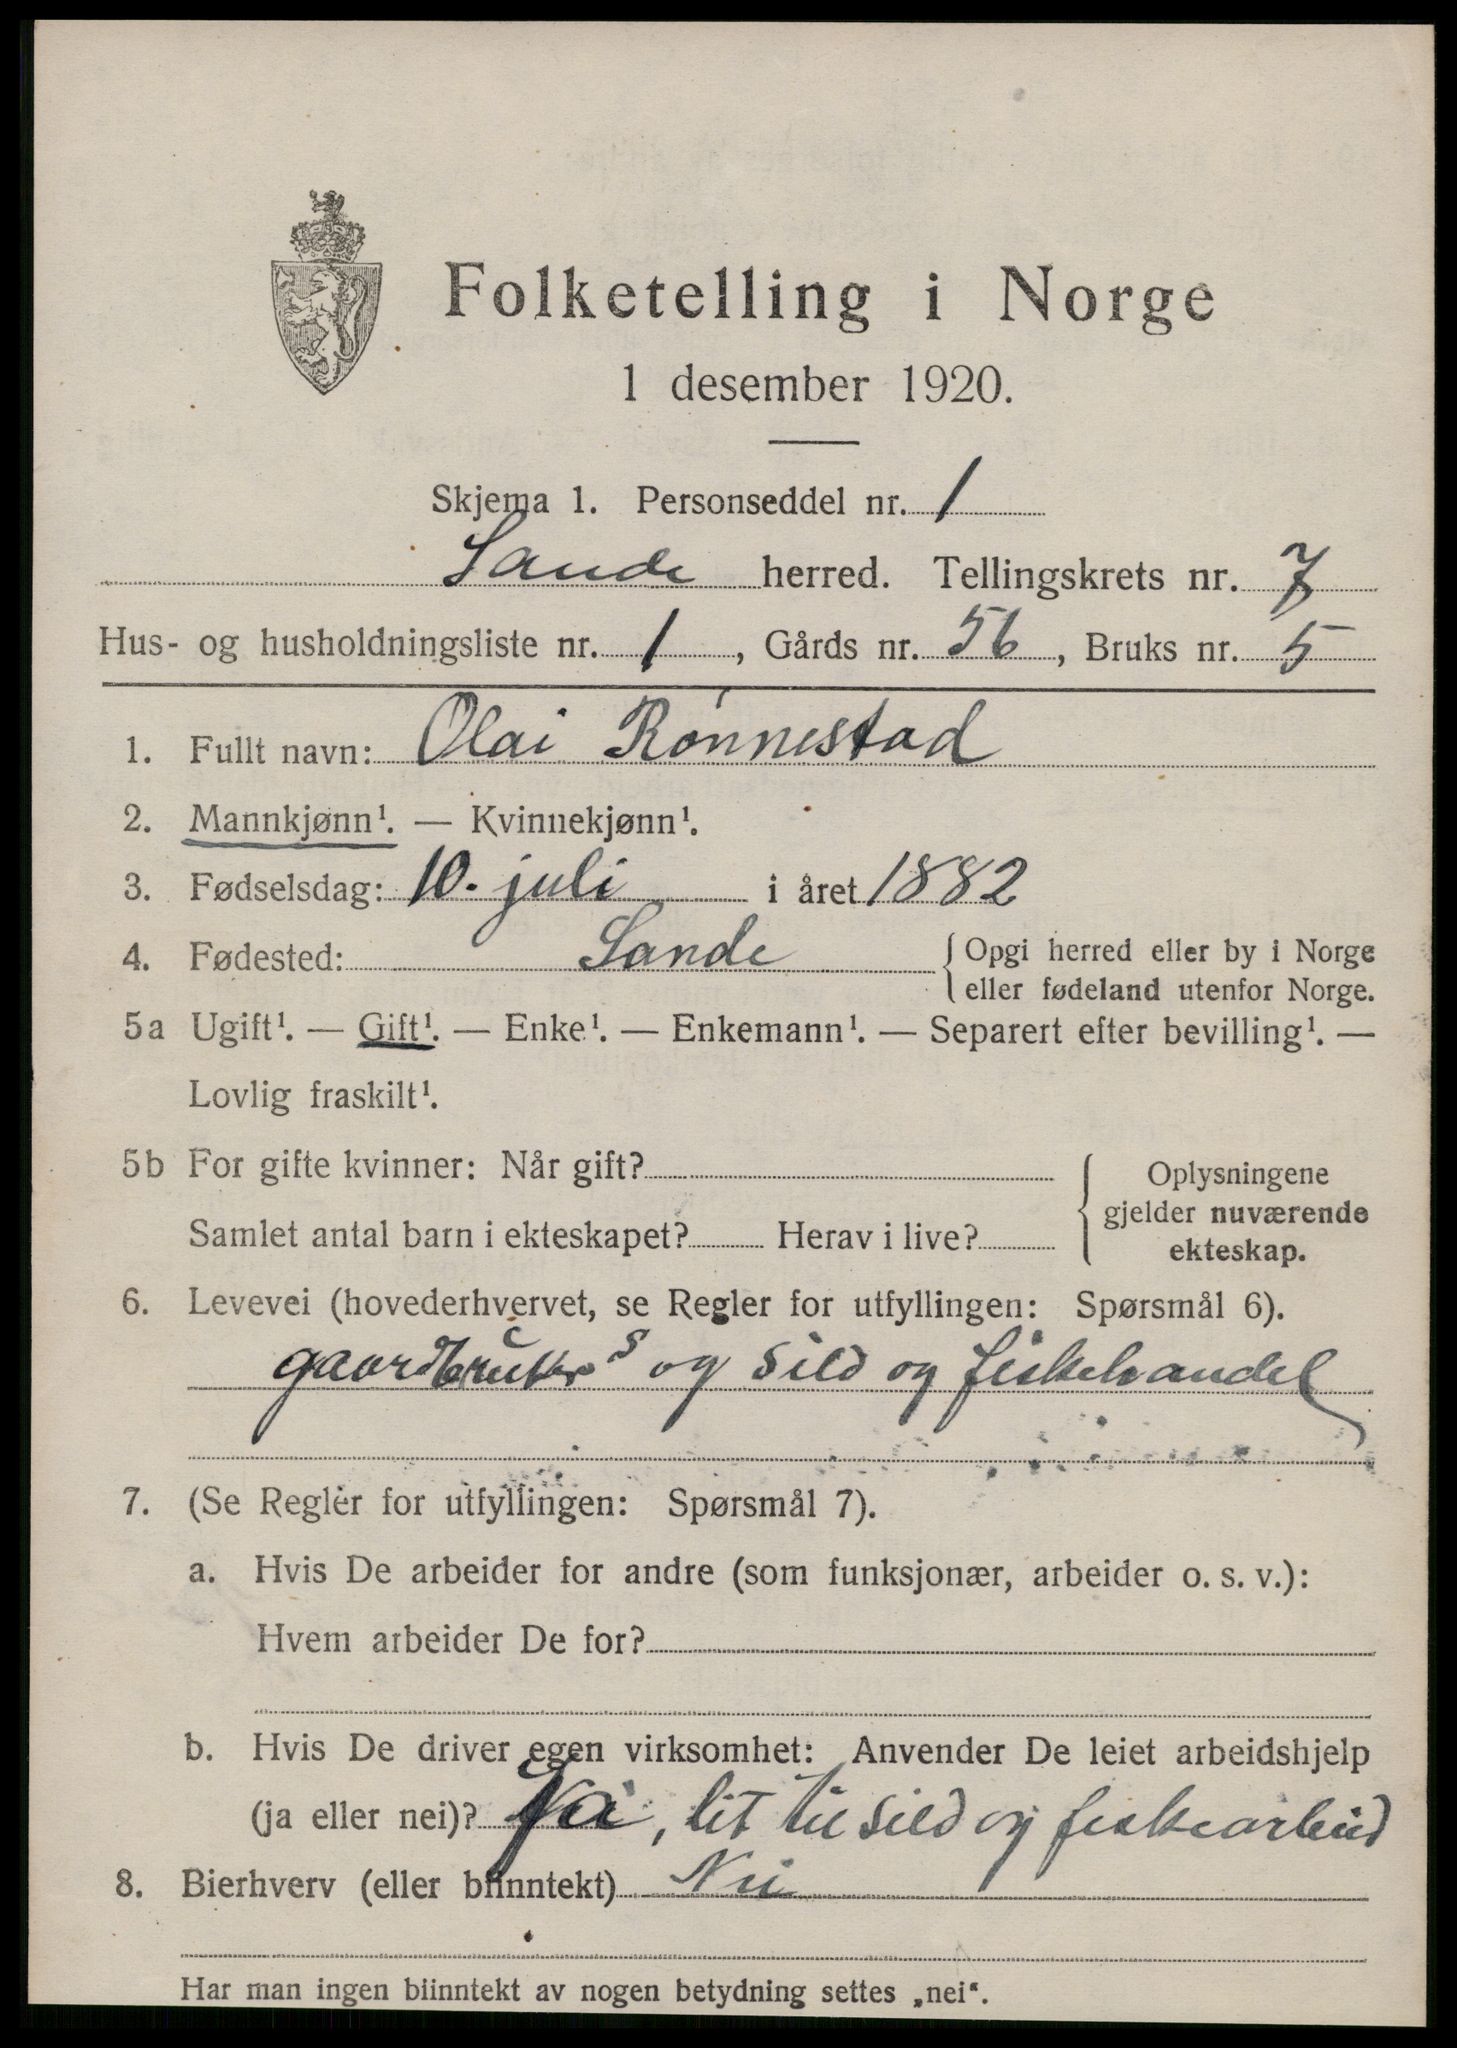 Folketelling i Norge
1 desember 1920.
Skjema 1. Personseddel nr. 1
Sande herred. Tellingskrets nr. 7
Hus- og husholdningsliste nr. 1, Gårds nr. 56, Bruks nr. 5
1. Fullt navn: Olai Rønnestad
2. Mannkjønn¹. — Kvinnekjønn¹.
3. Fødselsdag: 10. juli i året 1882
4. Fødested: Sande { Opgi herred eller by i Norge
eller fødeland utenfor Norge.
5a Ugift¹. — Gift¹. — Enke¹. — Enkemann¹. — Separert efter bevilling¹. —
Lovlig fraskilt¹.
5b For gifte kvinner: Når gift? { Oplysningene
gjelder nuværende
Samlet antal barn i ekteskapet? Herav i live?
ekteskap.
6. Levevei (hovederhvervet, se Regler for utfyllingen: Spørsmål 6).
og sild og fiskehandel
7. (Se Regler for utfyllingen: Spørsmål 7).
a. Hvis De arbeider for andre (som funksjonær, arbeider o. s. v.):
Hvem arbeider De for?
b. Hvis De driver egen virksomhet: Anvender De leiet arbeidshjelp
(ja eller nei)? Ja, lit til sild og fiskearbeid
8. Bierhverv (eller biinntekt) Nei
Har man ingen biinntekt av nogen betydning settes „nei“.